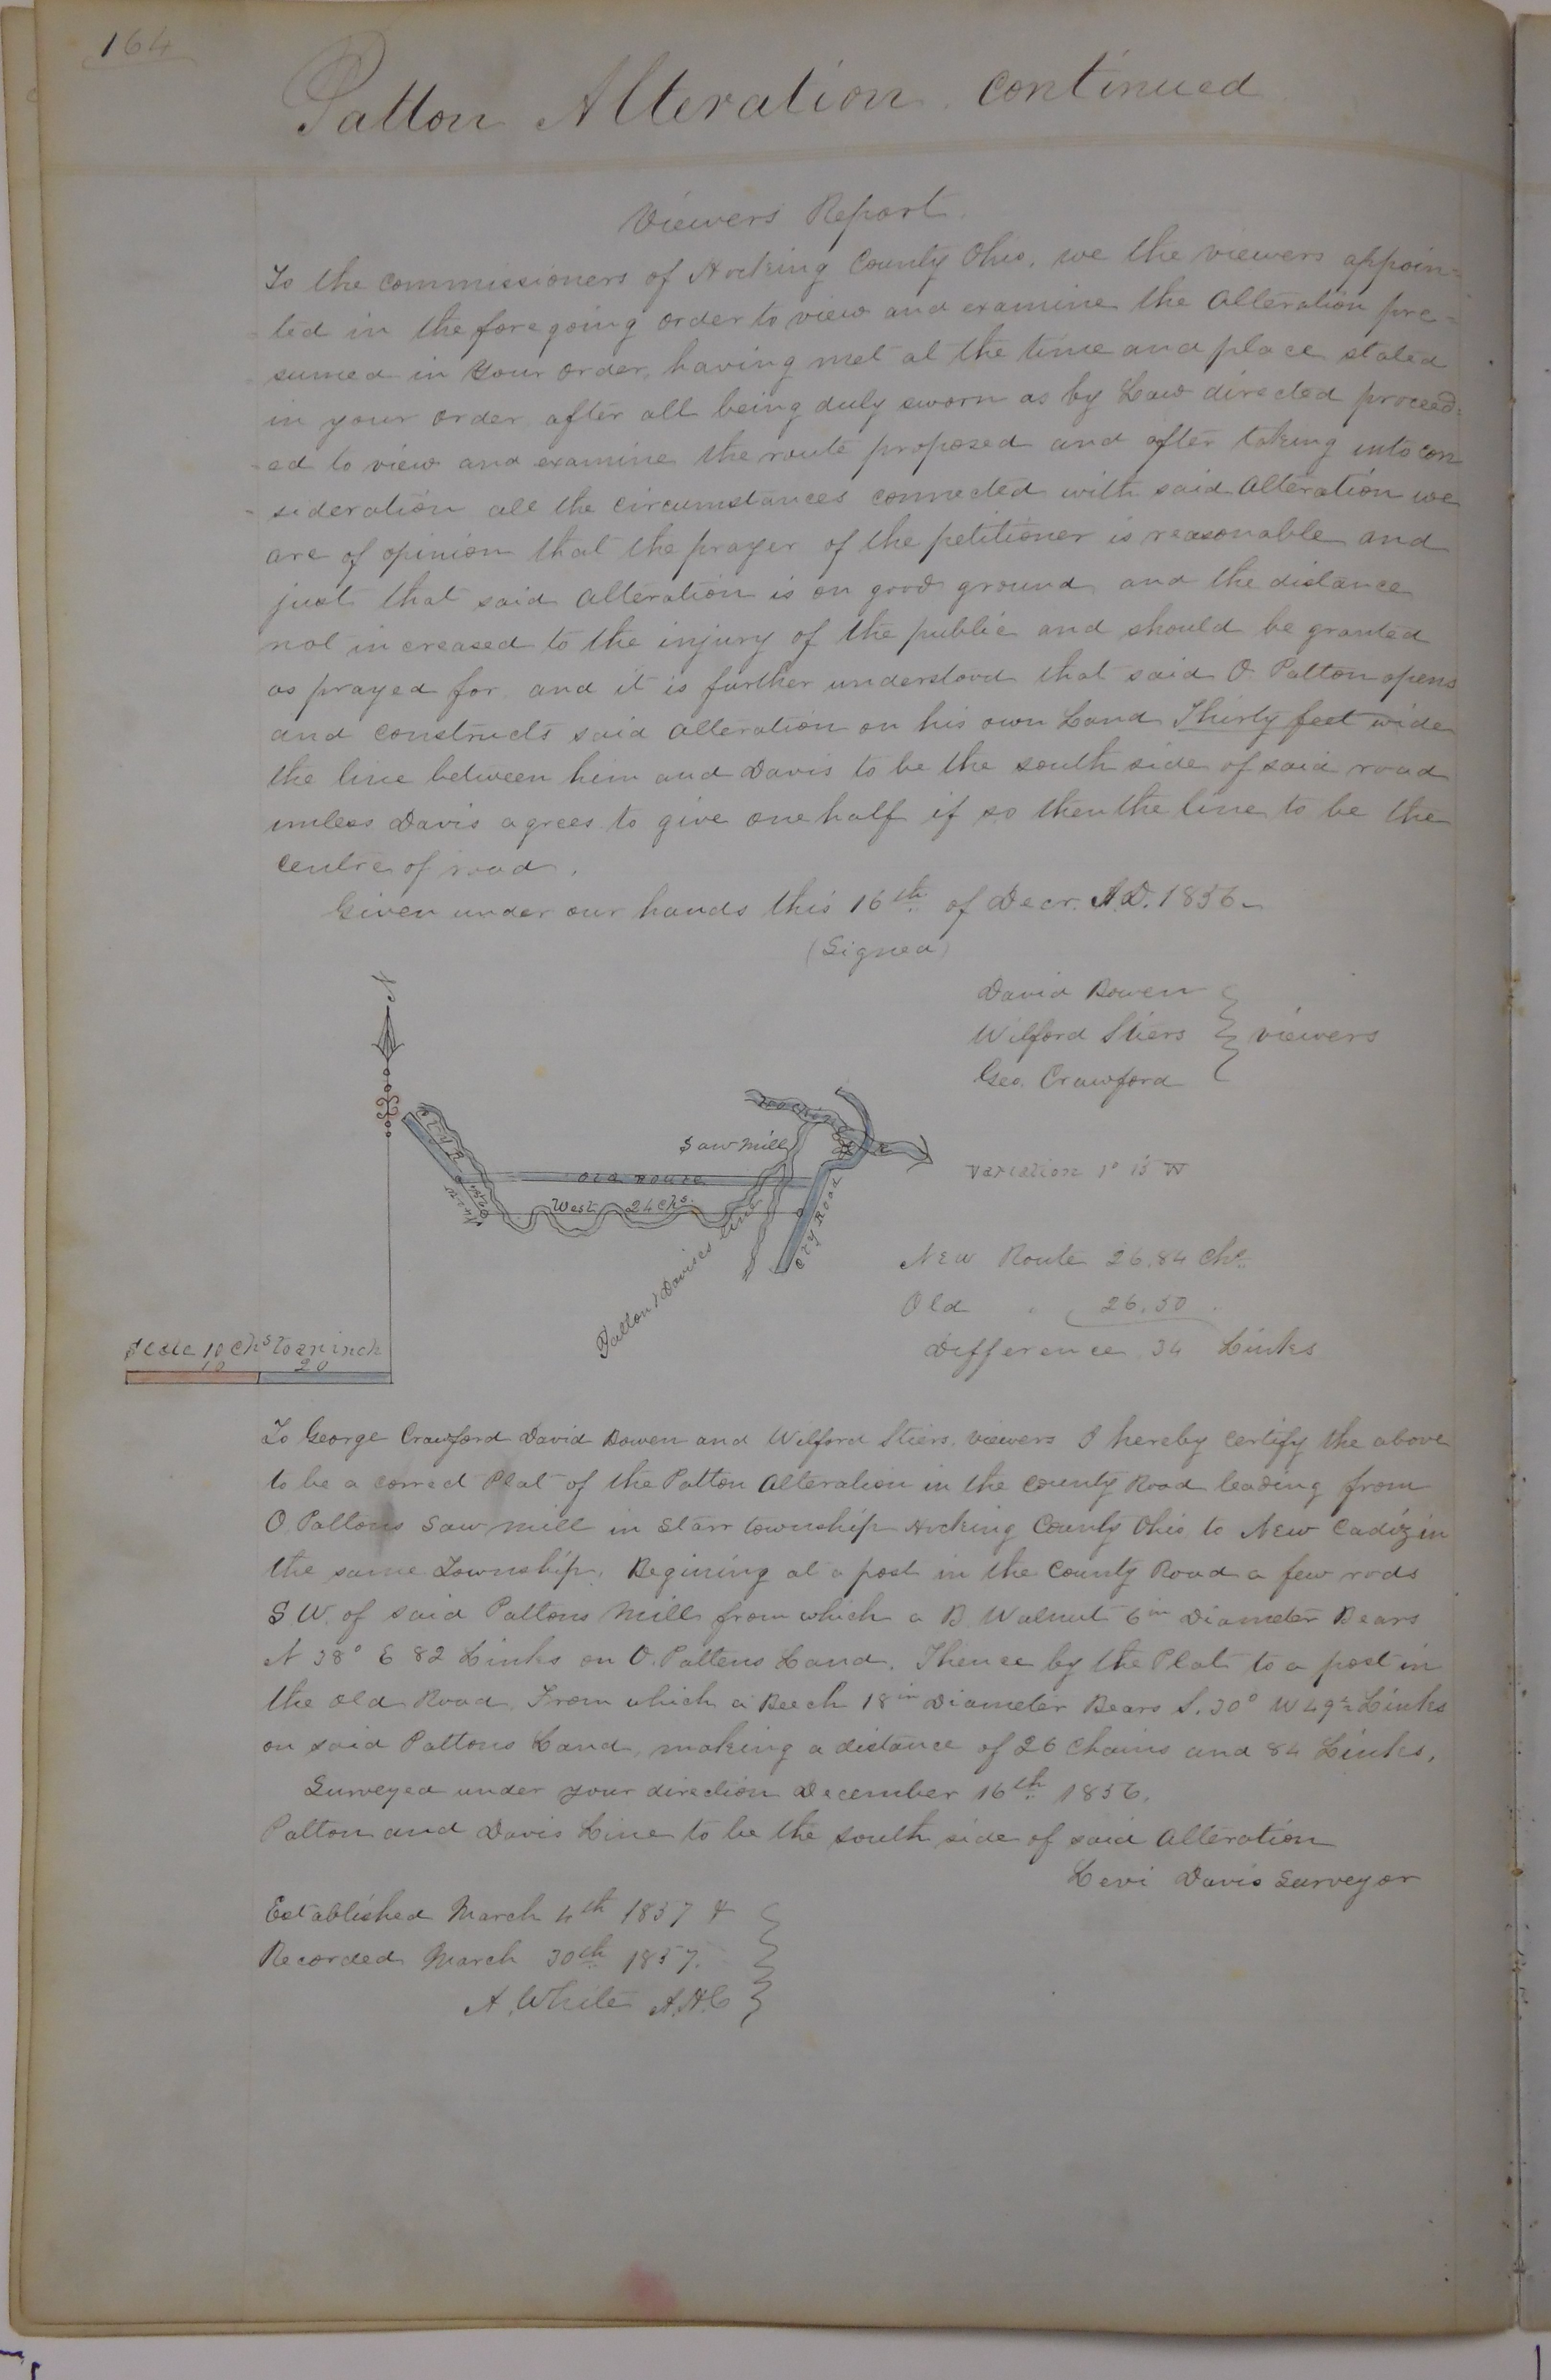 164
Patton Alteration continued
Viewers Report.
To the commissioners of Hocking County Ohio, we the viewers appoin=
ted in the foregoing order to view and examine the Alteration pre=
sumed in your order, having met at the time and place stated
in your order after all being duly sworn as by Law directed proceed=
ed to view and examine the route proposed and after taking into con
sideration all the circumstances connected with said alteration we
are of opinion that the prayer of the petitioner is reasonable and
just that said alteration is on good ground and the distance
not increased to the injury of the public and should be granted
as prayed for and it is further understood that said O. Patton opens
and constructs said alteration on his own Land Thirty feet wide
the line between him and Davis to be the south side of said road
unless Davis agrees to give one half if so then the line to be the
centre of road.
Given under our hands this 16th of Decr. A.D. 1856
(Signed)
David Bowen
Wilford Stiers } viewers
Geo. Crawford
N
Saw Mill
Old Route
West 24 Chs.
Cty Road
Patton & Davises Line
Variation 1° 15 W
New Route 26.84 Chs.
Old " 26.50
Difference 34 Links
Scale 10 Chs to an inch
10 20
To George Crawford David Bowen and Wilford Stiers, viewers I hereby certify the above
to be a correct Plat of the Patton Alteration in the County Road leading from
O Pattons Saw mill in Starr township Hocking County Ohio, to New Cadiz in
the same Township. Begining at a post in the County Road a few rods
S W. of said Pattons Mill from which a B. Walnut 6in Diameter Bears
N 38° E 82 Links on O. Pattens Land. Thence by the Plat to a post in
the old Road From which a Beech 18in Diameter Bears S. 30° W 49 Links
on said Pattons Land, making a distance of 26 Chains and 84 Links,
Surveyed under your direction December 16th 1856.
Patton and Davis Line to be the south side of said Alteration
Levi Davis Surveyor
Established March 4th 1857 &
Recorded March 30th 1857.
A. White A.H.C